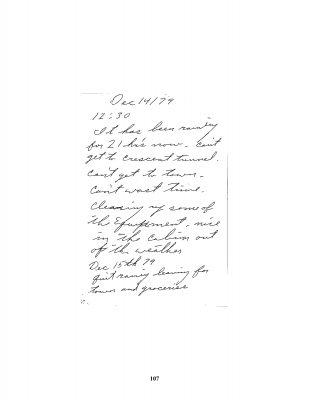 Dec 14/79
12:30
It has been raining
for 21 hrs now. Can't
get to crescent tunnel.
Can't get to town.
Can't wast time.
Cleaning up some of
the Equipment, nice
in the Cabin out
of the weather
Dec 15th 79
Quit raining leaving for
town and groceries
107